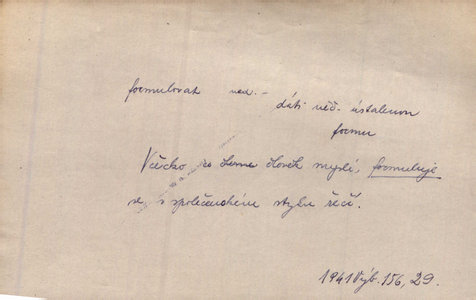 formulovat ned. –
dáti něč. ustálenou
formu
Všecko, co člověk myslí, formuluje
se v společenském stylu řečí.
1941 Výb. 156, 29.